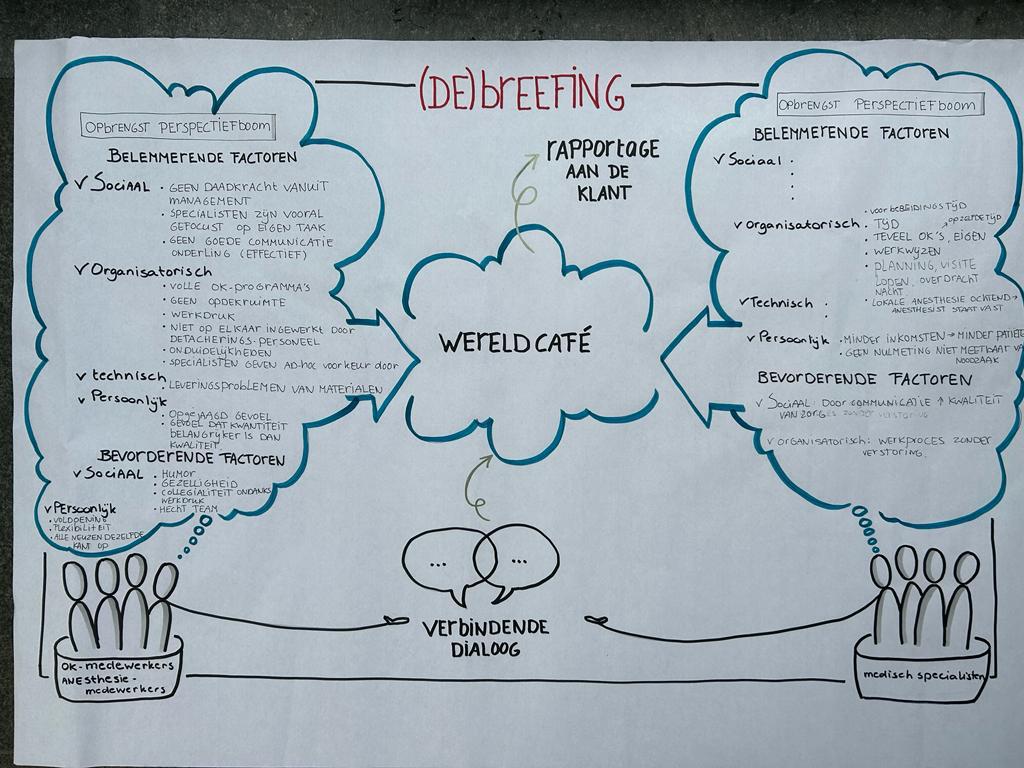 (DE)bREEFING
OPBRENGST PERSPECTIEFBOOM
BELEMMERENDE FACTOREN
√ SOCIAAL • GEEN DAADKRACHT VANUIT
MANAGEMENT
• SPECIALISTEN ZIJN VOORAL
GEFOCUST OP EIGEN TAAK
• GEEN GOEDE COMMUNICATIE
ONDERLING (EFFECTIEF)
√ Organisatorisch
• VOLLE OK-PROGRAMMA'S
• GEEN OPDEKRUIMTE
• WERKDRUK
• NIET OP ELKAAR INGEWERKT DOOR
DETACHERINGS-PERSONEEL
• ONDUIDELIJKHEDEN
• SPECIALISTEN GEVEN AD-HOC VOORKEUR DOOR
√ technisch
• LEVERINGSPROBLEMEN VAN MATERIALEN
√ Persoonlijk
• OPGEJAAGD GEVOEL
• GEVOEL DAT KWANTITEIT
BELANGRIJKER IS DAN
KWALITEIT
BEVORDERENDE FACTOREN
√ SOCIAAL • HUMOR
• GEZELLIGHEID
• COLLEGIALITEIT ONDANKS
WERKDRUK
• HECHT TEAM
√ Persoonlijk
• VOLDOENING
• FLEXIBILITEIT
• ALLE NEUZEN DEZELFDE
KANT OP
OK-medewerkers
ANESTHESIE-
medewerkers
rapportage
AAN DE
KLANT
WERELDCAFÉ
...
...
VERBINDENDE
DIALOOG
OPBRENGST PERSPECTIEFBOOM
BELEMMERENDE FACTOREN
√ Sociaal •
• VOORBEREIDINGSTIJD
√ Organisatorisch • TIJD → OPZELFDE TIJD
• TEVEEL OK'S, EIGEN
• WERKWIJZEN
• PLANNING, VISITE
LOPEN, OVERDRACHT
NACHT
• LOKALE ANESTHESIE OCHTEND→
ANESTHESIST STAAT VAST
√ Technisch •
√ Persoonlijk • MINDER INKOMSTEN → MINDER
• GEEN NULMETING NIET MEETBAAR
NOODZAAK
BEVORDERENDE FACTOREN
√ SOCIAAL: DOOR COMMUNICATIE ↑ KWALITEIT
VAN ZORG
√ ORGANISATORISCH: WERKPROCES ZONDER
VERSTORING
medisch specialisten